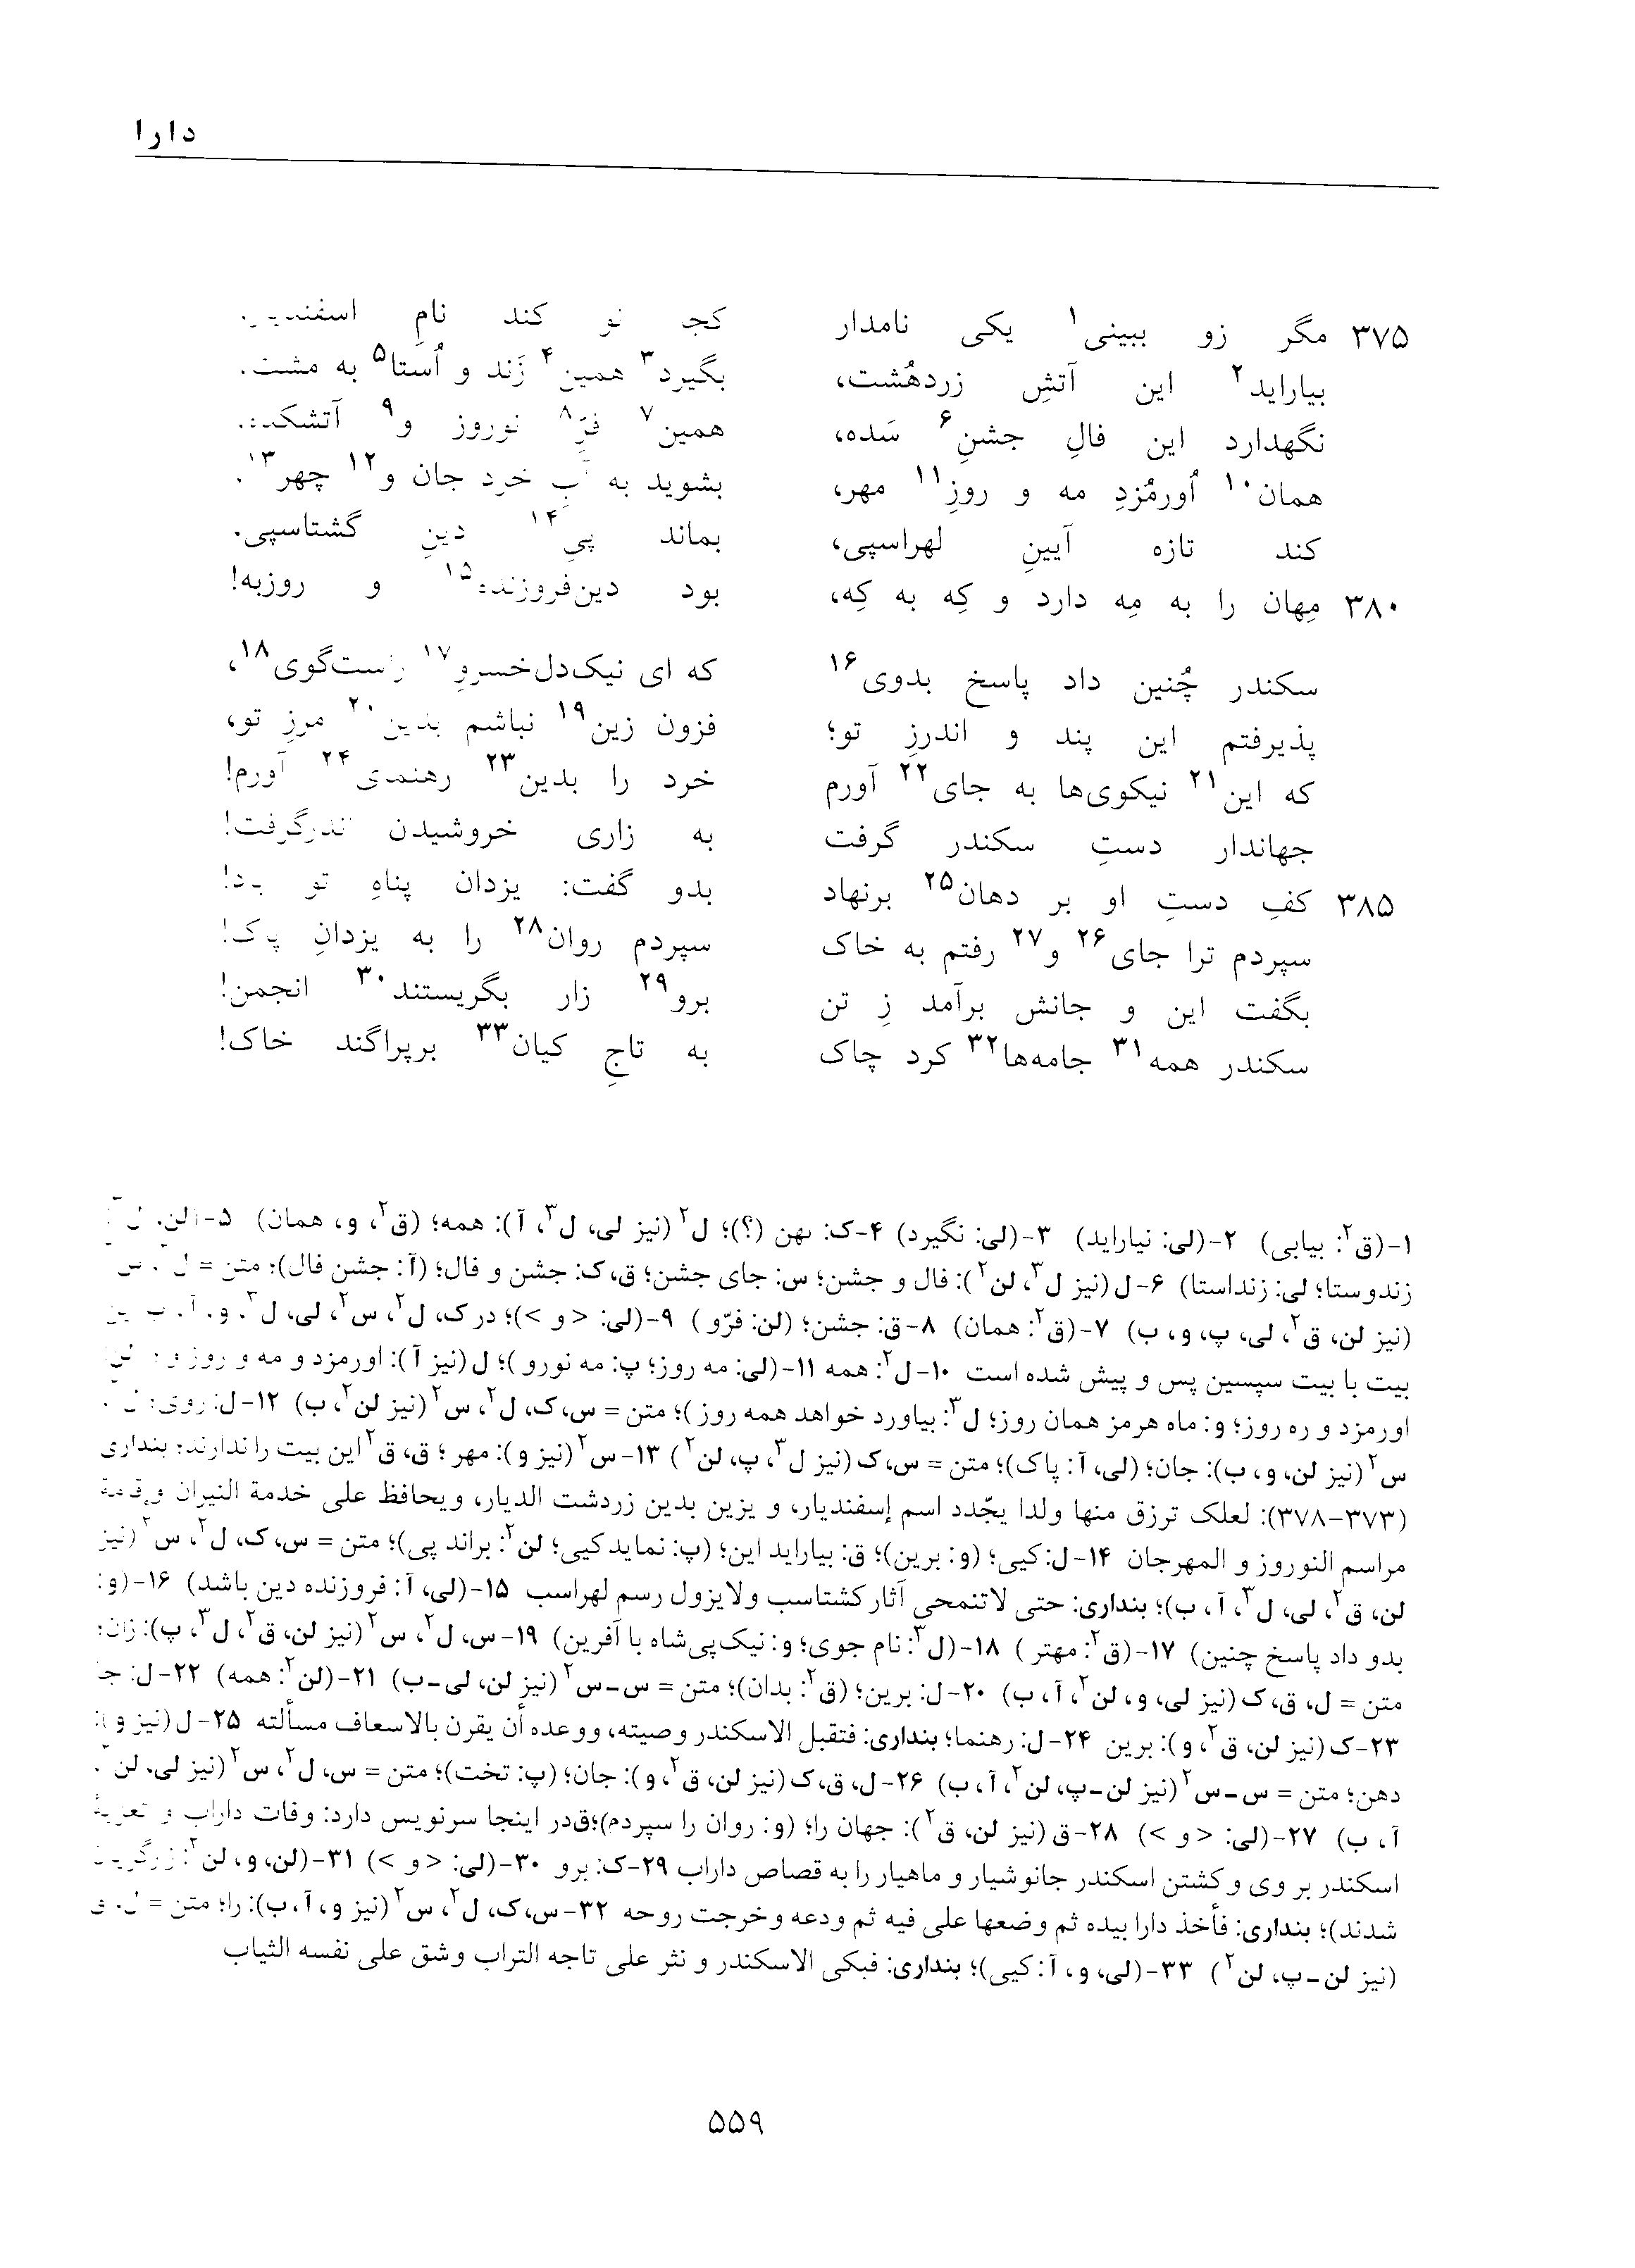 دارا
۳۷۵ مگر زو ببینی۱ یکی نامدار کجا نو کند نامِ اسفندیار،
بیاراید۲ این آتشِ زردهُشت، بگیرد۳ همین۴ زَند و اُستا۵ به مشت،
نگهدارد این فالِ جشنِ۶ سَده، همین۷ فرِّ۸ نوروز و۹ آتشکده،
همان۱۰ اُورمُزدِ مه و روزِ۱۱ مهر، بشوید به آبِ خرد جان و۱۲ چهر۱۳،
کند تازه آیینِ لهراسپی، بماند پیِ۱۴ دینِ گشتاسپی.
۳۸۰ مِهان را به مِه دارد و کِه به کِه، بود دین‌فروزنده۱۵ و روزبه!
سکندر چُنین داد پاسخ بدوی۱۶ که ای نیک‌دل‌خسروِ۱۷ راست‌گوی۱۸،
پذیرفتم این پند و اندرزِ تو؛ فزون زین۱۹ نباشم بدین۲۰ مرزِ تو،
که این۲۱ نیکوی‌ها به جای۲۲ آورم خرد را بدین۲۳ رهنمای۲۴ آورم!
جهاندار دستِ سکندر گرفت به زاری خروشیدن اندرگرفت!
۳۸۵ کفِ دستِ او بر دهان۲۵ برنهاد بدو گفت: یزدان پناهِ تو باد!
سپردم ترا جای۲۶ و۲۷ رفتم به خاک سپردم روان۲۸ را به یزدانِ پاک!
بگفت این و جانش برآمد زِ تن برو۲۹ زار بگریستند۳۰ انجمن!
سکندر همه۳۱ جامه‌ها۳۲ کرد چاک به تاجِ کیان۳۳ برپراگند خاک!
۱-(ق۲: بیابی) ۲-(لی: نیاراید) ۳-(لی: نگیرد) ۴-ک: بهن (؟)؛ ل۲ (نیز لی، ل۳، آ): همه؛ (ق۲، و، همان) ۵-(لن، ل
زندوستا؛ لی: زنداستا) ۶-ل (نیز ل۳، لن۲): فال و جشن؛ س: جای جشن؛ ق،ک: جشن و فال؛ (آ: جشن فال)؛ متن = ل، س
(نیز لن، ق۲، لی، پ، و، ب) ۷-(ق۲: همان) ۸-ق: جشن؛ (لن: فرّو) ۹-(لی: <و>)؛ در ک، ل۲، س۲، لی، ل۳، و، آ، ب این
بیت با بیت سپسین پس و پیش شده است ۱۰-ل۲: همه ۱۱-(لی: مه روز؛ پ: مه نورو)؛ ل (نیز آ): اورمزد و مه و روز و
اورمزد و ره روز؛ و: ماه هرمز همان روز؛ ل۳: بیاورد خواهد همه روز)؛ متن = س،ک، ل۲، س۲ (نیز لن۲، ب) ۱۲-ل: روی؛ ل
س۲ (نیز لن، و، ب): جان؛ (لی، آ: پاک)؛ متن = س،ک (نیز ل۳، پ، لن۲) ۱۳-س۲ (نیز و): مهر؛ ق، ق۲ این بیت را ندارند؛ بنداری
(۳۷۳-۳۷۸): لعلک ترزق منها ولدا یجّدد اسم إسفندیار، و یزین بدین زردشت الدیار، ویحافظ علی خدمة النیران وإقامة
مراسم النوروز و المهرجان ۱۴-ل: کیی؛ (و: برین)؛ ق: بیاراید این؛ (پ: نماید کیی؛ لن۲: براند پی)؛ متن = س،ک، ل۲، س۲ (نیز
لن، ق۲، لی، ل۳، آ، ب)؛ بنداری: حتی لاتنمحی آثار کشتاسب ولایزول رسم لهراسب ۱۵-(لی، آ: فروزنده دین باشد) ۱۶-(و:
بدو داد پاسخ چنین) ۱۷-(ق۲: مهتر) ۱۸-(ل۳: نام جوی؛ و: نیک‌پی‌شاه با آفرین) ۱۹-س، ل۲، س۲ (نیز لن، ق۲، ل۳، پ): زان؛
متن = ل، ق،ک (نیز لی، و، لن۲، آ، ب) ۲۰-ل: برین؛ (ق۲: بدان)؛ متن = س-س۲ (نیز لن، لی-ب) ۲۱-(لن۲: همه) ۲۲-ل: جا
۲۳-ک (نیز لن، ق۲، و): برین ۲۴-ل: رهنما؛ بنداری: فتقبل الاسکندر وصیته، ووعده أن یقرن بالاسعاف مسألته ۲۵-ل (نیز و):
دهن؛ متن = س-س۲ (نیز لن-پ، لن۲، آ، ب) ۲۶-ل، ق،ک (نیز لن، ق۲، و): جان؛ (پ: تخت)؛ متن = س، ل۲، س۲ (نیز لی، لن۲،
آ، ب) ۲۷-(لی: <و>) ۲۸-ق (نیز لن، ق۲): جهان را؛ (و: روان را سپردم)؛ق‌در اینجا سرنویس دارد: وفات داراب و تعزیۀ
اسکندر بر وی و کشتن اسکندر جانوشیار و ماهیار را به قصاص داراب ۲۹-ک: برو ۳۰-(لی: <و>) ۳۱-(لن، و، لن۲:
شدند)؛ بنداری: فأخذ دارا بیده ثم وضعها علی فیه ثم ودعه وخرجت روحه ۳۲-س،ک، ل۲، س۲ (نیز و، آ، ب): را؛ متن = ل، ق
(نیز لن-پ، لن۲) ۳۳-(لی، و، آ: کیی)؛ بنداری: فبکی الاسکندر و نثر علی تاجه التراب وشق علی نفسه الثیاب
۵۵۹